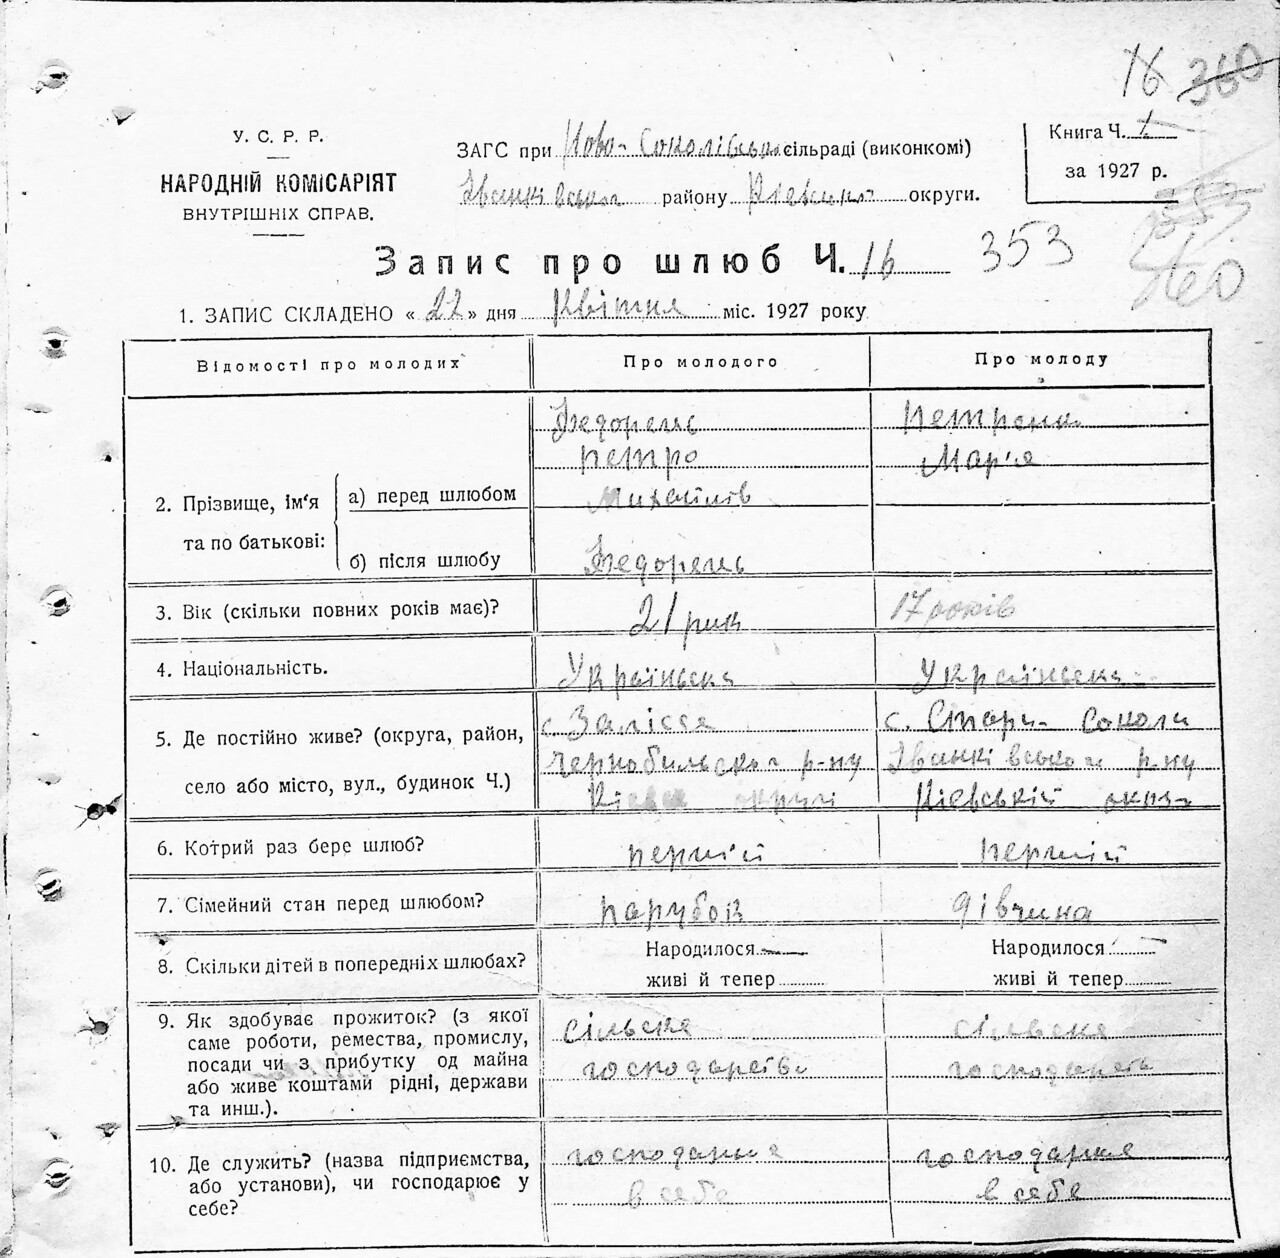 16 360
У. С. Р. Р.
НАРОДНІЙ КОМІСАРІЯТ
ВНУТРІШНІХ СПРАВ.
ЗАГС при Ново-Соколівськ. сільраді (виконкомі)
Іванківської району Київської округи.
Книга Ч. 1
за 1927 р.
353
Запис про шлюб Ч. 16 353
1. ЗАПИС СКЛАДЕНО « 22 » дня Квітня міс. 1927 року
Відомості про молодих
Про молодого
Про молоду
2. Прізвище, ім'я та по батькові:
а) перед шлюбом
Федорець
Петро
Михайлів
Петренк
Мар'я
б) після шлюбу
Федорець
3. Вік (скільки повних років має)?
21 рик
17 років
4. Національність.
Україньська
Україньська
5. Де постійно живе? (округа, район,
село або місто, вул., будинок Ч.)
с. Залісся
Чернобильског р-ну
округі
с. Стари- Соколи
Іванківськог р-ну
Кіевській окр.
6. Котрий раз бере шлюб?
первій
первій
7. Сімейний стан перед шлюбом?
парубок
дівчина
8. Скільки дітей в попередніх шлюбах?
Народилося —
живі й тепер
Народилося —
живі й тепер
9. Як здобуває прожиток? (з якої
саме роботи, ремества, промислу,
посади чи з прибутку од майна
або живе коштами рідні, держави
та инш.).
сільске
господарство
сільске
господарств
10. Де служить? (назва підприємства,
або установи), чи господарює у
себе?
господарює
в себе
господарює
в себе